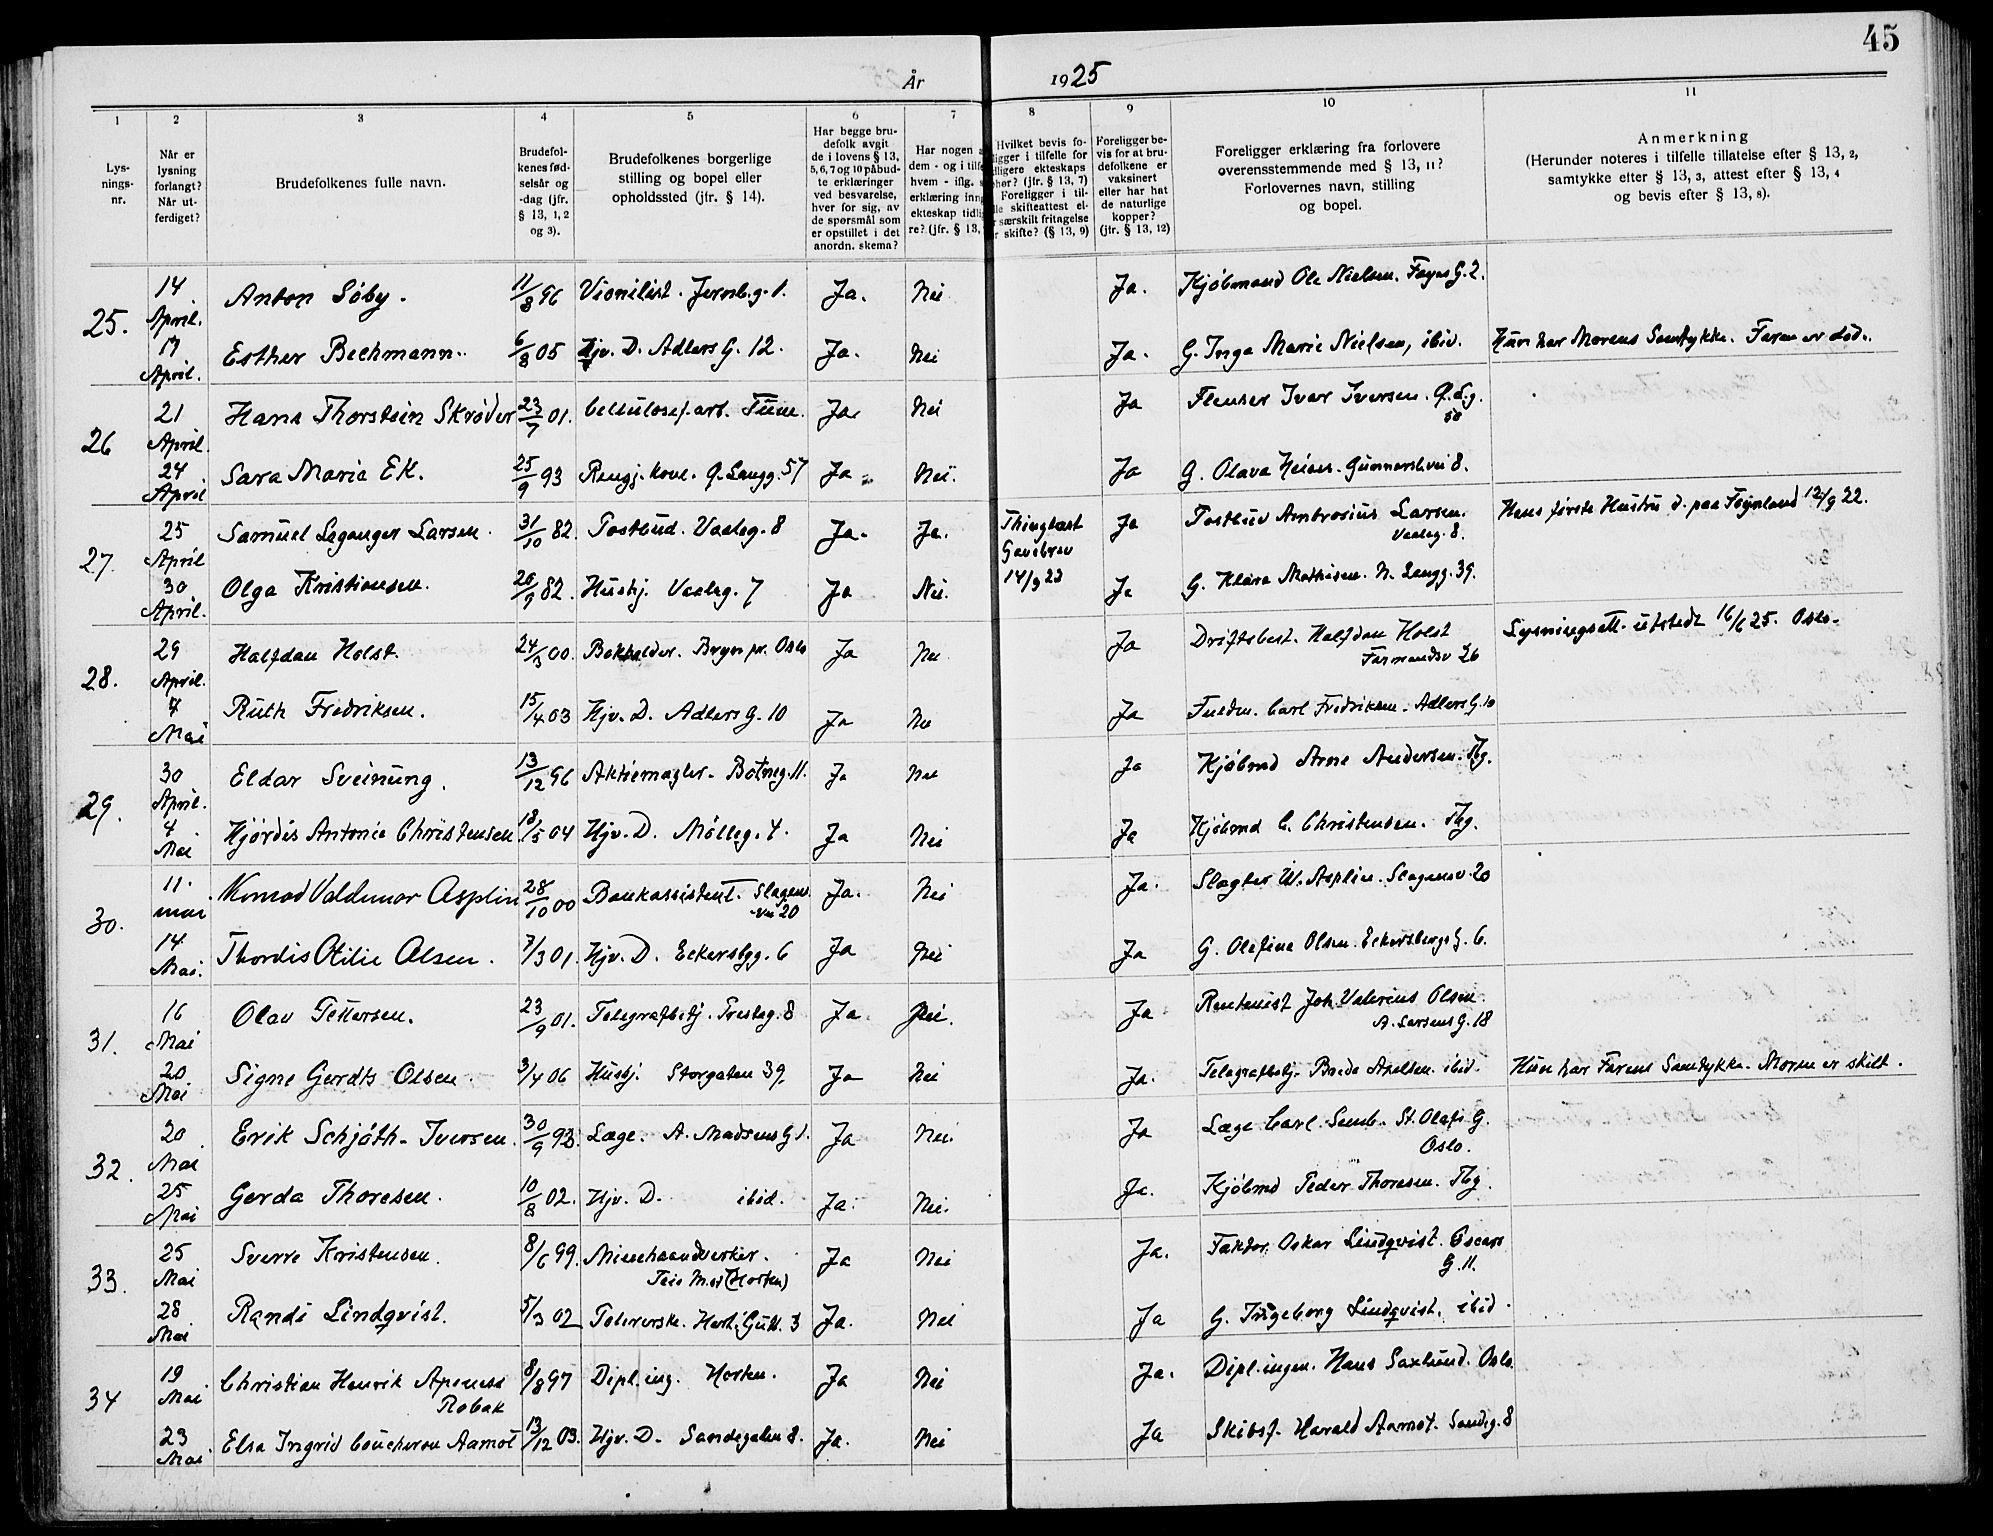 45
År 1925
1 2 3 4 5 6 7 8 9 10 11
Lys-
nings-
nr.
Når er
lysning
forlangt?
Når ut-
ferdiget?
Brudefolkenes fulle navn.
Brudefol-
kenes fød-
selsår og
-dag (jfr.
§ 13, 1, 2
og 3).
Brudefolkenes borgerlige
stilling og bopel eller
opholdssted (jfr. § 14).
Har begge bru-
defolk avgit
de i lovens § 13,
5, 6, 7 og 10 påbud-
te erklæringer
ved besvarelse,
hver for sig, av
de spørsmål som
er opstillet i det
anordn. skema?
Har nogen a
dem - og i tilfe
hvem - iflg. s
erklæring inng
ekteskap tidli
re? (jfr. § 13,
Hvilket bevis fo-
ligger i tilfelle for
dligere ekteskaps
phør? (jfr. § 13, 7)
Foreligger i til-
lle skifteattest el-
r særskilt fritagelse
r skifte? (§ 13, 9)
Foreligger be-
vis for at bru-
defolkene er
vaksinert
eller har hat
de naturlige
kopper?
(jfr. § 13, 12)
Foreligger erklæring fra forlovere
overensstemmende med § 13, 11?
Forlovernes navn, stilling
og bopel.
Anmerkning
(Herunder noteres i tilfelle tillatelse efter § 13, 2,
samtykke efter § 13, 3, attest efter § 13, 4
og bevis efter § 13, 8).
25.
14 April. Anton Söby. 11/8 96 Vionilist. Jernb.g. 1. Ja. Nei Ja. Kjöbmand Ole Nielsen. Foyns G. 2.
17 April. Esther Bechmann. 6/8 05 Hjv. D. Adlers G. 12. Ja. Nei Ja. G. Inga Marie Nielsen, ibid. Hun har Morens Samtykke. Faren er död.
26
21 April. Hans Thorstein Skröder 23/7 01. Cellulosef.arb. Ja. Nei Ja Flenser Ivar Iversen. Ø.L.g.
50
24 April Sara Marie Ek. 25/9 93 Rengj. kone. Ø. Langg. 57 Ja Nei. Ja G. Olava Gunnarsb.vei 8.
27.
25 April Samuel Leganger Larsen. 31/10 82. Postbud. Vaaleg. 8 Ja. Ja. Thinglæst
Gavebrev
14/9 22
Ja Postbud Ambrosius Larsen.
Vaaleg. 8.
Hans förste Hustru d. paa Föynland 12/9 22.
30 April. Olga Kristiansen. 20/9 82. Hushj. Vaaleg. 7 Ja Nei. Ja G. Klara Mathisen. N. Langg. 39.
28.
29 April. Halfdan Holst. 24/3 00. Bokholder. Bryn pr. Oslo Ja Nei Ja Driftsbest. Halfdan Holst
Farmandsv 26
Lysningsatt. utstedt 16/6 25. Oslo.
4 Mai Ruth Fredriksen. 15/4 03 Hjv. D. Adlers G. 10 Ja Nei Ja Fuldm. Carl Fredriksen. Adlers G. 10
29.
30 April. Eldar Sveinung. 13/12 96 Aktiemægler. Botneg. 11. Ja Nei Ja Kjöbmd Arne Andersen. Tbg.
4 Mai Hjördis Antonie Christensen 18/5 04 Hjv. D. Mölleg. 4. Ja Nei Ja Kjöbmd C. Christensen. Tbg.
30.
11. mai Konrad Valdemar Asplin 28/10 00 Bankassistent. Slagens-
vei 20
Ja. Nei Ja. Slagter W. Asplin. Slagensv 20
14 Mai. Thordis Otilie Olsen. 7/3 01. Hjv. D. Eckersbgg. 6 Ja Nei Ja G. Olefine Olsen. Eckersbergs G. 6.
31.
16 Mai Olav Pettersen. 23/9 01. Telegrafbetj. Presteg. 8 Ja Nei. Ja Rentenist Joh. Valerius Olsen.
A. Larsens G. 18
20 Mai Signe Gerdts Olsen. 3/4 06 Hushj. Storgaten 39 Ja Nei Ja. Telegrafbetj. Axelsen. ibid. Hun har Farens Samtykke. Moren er skilt.
32.
20 Mai Erik Schjöth-Iversen. 30/9 93. Læge. A. Madsens G 1. Ja Nei. Ja Læge Carl Semb. St. Olafs G.
Oslo.
25 Mai Gerda Thoresen. 10/8 02. Hjv. D. ibid. Ja. Nei. Ja. Kjöbmd Peder Thoresen. Tbg.
33.
25 Mai Sverre Kristensen. 8/6 99. Minehaandverker.
(Horten)
Ja Nei Ja. Faktor Oskar Lindqvist. Oscars
G. 11.
28 Mai Randi Lindqvist. 5/3 02 Polererske. Ja. Nei Ja G. Ingeborg Lindqvist. ibid.
34
19 Mai Christian Henrik Apeness
Robak
8/8 97 Dipl.ing. Horten. Ja Nei Ja. Dipl.ingen. Hans Saxlund. Oslo.
23 Mai Elsa Ingrid Coucheron Aamot 13/12 03. Hjv. D. Sandegaten 8. Ja. Nei Ja Skibsf. Harald Aamot. Sandeg. 8